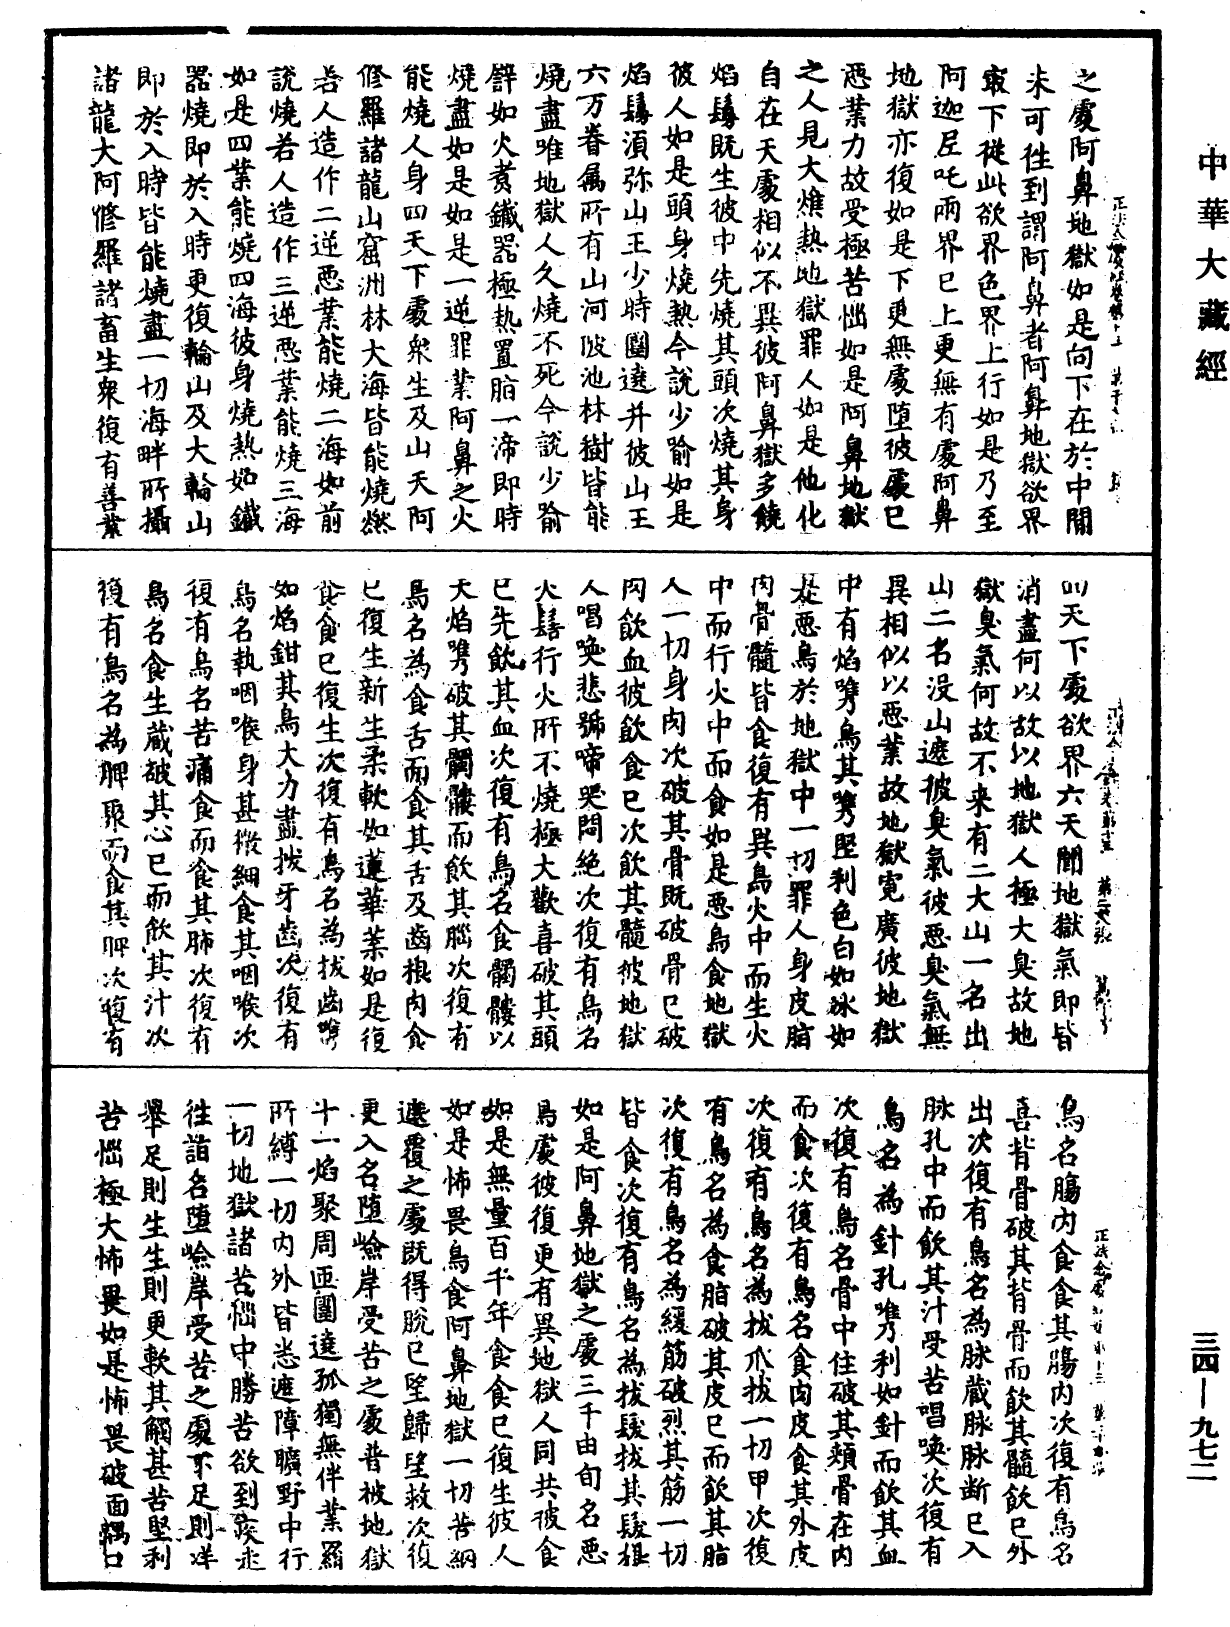 中華大藏經
之處阿鼻地獄如是向下在於中間
未可徃到謂阿鼻者阿鼻地獄欲界
㝡下從此欲界色界上行如是乃至
阿迦尼吒兩界已上更無有處阿鼻
地獄亦復如是下更無處墮彼處已
惡業力故受極苦惱如是阿鼻地獄
之人見大燋熱地獄罪人如是他化
自在天處相似不異彼阿鼻獄多饒
焰鬘既生彼中先燒其頭次燒其身
彼人如是頭身燒熱今說少喻如是
焰鬘須弥山王少時圍遶并彼山王
六万眷属所有山河陂池林樹皆能
燒盡唯地獄人久燒不死今說少喻
譬如火煑鐵器極熱置脂一渧即時
燒盡如是如是一逆罪業阿鼻之火
能燒人身四天下處衆生及山天阿
修羅諸龍山窟洲林大海皆能燒燃
若人造作二逆惡業能燒二海如前
說燒若人造作三逆惡業能燒三海
如是四業能燒四海彼身燒熱如鐵
器燒即於入時更復輪山及大輪山
即於入時皆能燒盡一切海畔所攝
諸龍大阿修羅諸畜生衆復有善業
四天下處欲界六天聞地獄氣即皆
消盡何以故以地獄人極大臭故地
獄臭氣何故不来有二大山一名出
山二名没山遮彼臭氣彼惡臭氣無
異相似以惡業故地獄寬廣彼地獄
中有焰㭰鳥其㭰堅利色白如冰如
是惡鳥於地獄中一切罪人身皮脂
肉骨髓皆食復有異鳥火中而生火
中而行火中而食如是惡鳥食地獄
人一切身肉次破其骨既破骨已破
肉飲血彼飲食已次飲其髓彼地獄
人唱喚悲號啼哭悶絕次復有鳥名
火髻行火所不燒極大歡喜破其頭
已先飲其血次復有鳥名食髑髏以
火焰㭰破其髑髏而飲其腦次復有
鳥名為食舌而食其舌及齒根肉食
已復生新生柔軟如蓮華葉如是復
食食已復生次復有鳥名為拔齒㭰
如焰鉗其鳥大力盡拔牙齒次復有
鳥名執咽喉身甚微細食其咽喉次
復有鳥名苦痛食而食其肺次復有
鳥名食生藏破其心已而飲其汁次
復有鳥名為脾聚而食其脾次復有
鳥名腸內食食其腸內次復有鳥名
喜背骨破其背骨而飲其髓飲已外
出次復有鳥名為脉藏脉脉断已入
脉孔中而飲其汁受苦唱喚次復有
鳥名為針孔㭰利如針而飲其血
次復有鳥名骨中住破其頰骨在內
而食次復有鳥名食肉皮食其外皮
次復有鳥名為拔爪拔一切甲次復
有鳥名為食脂破其皮已而飲其脂
次復有鳥名為緩筋破烈其筋一切
皆食次復有鳥名為拔髮拔其髮根
如是阿鼻地獄之處三千由旬名惡
鳥處彼復更有異地獄人同共彼食
如是無量百千年食食已復生彼人
如是怖畏鳥食阿鼻地獄一切苦網
遮覆之處既得脫已望歸望救次復
更入名墮嶮岸受苦之處普被地獄
十一焰聚周匝圍遶孤獨無伴業羂
所縛一切內外皆悉遮障曠野中行
一切地獄諸苦惱中勝苦欲到疾走
往詣名墮嶮岸受苦之處下足則洋
舉足則生生則更軟其觸甚苦堅利
苦惱極大怖畏如是怖畏破面喎口
三四—九七二